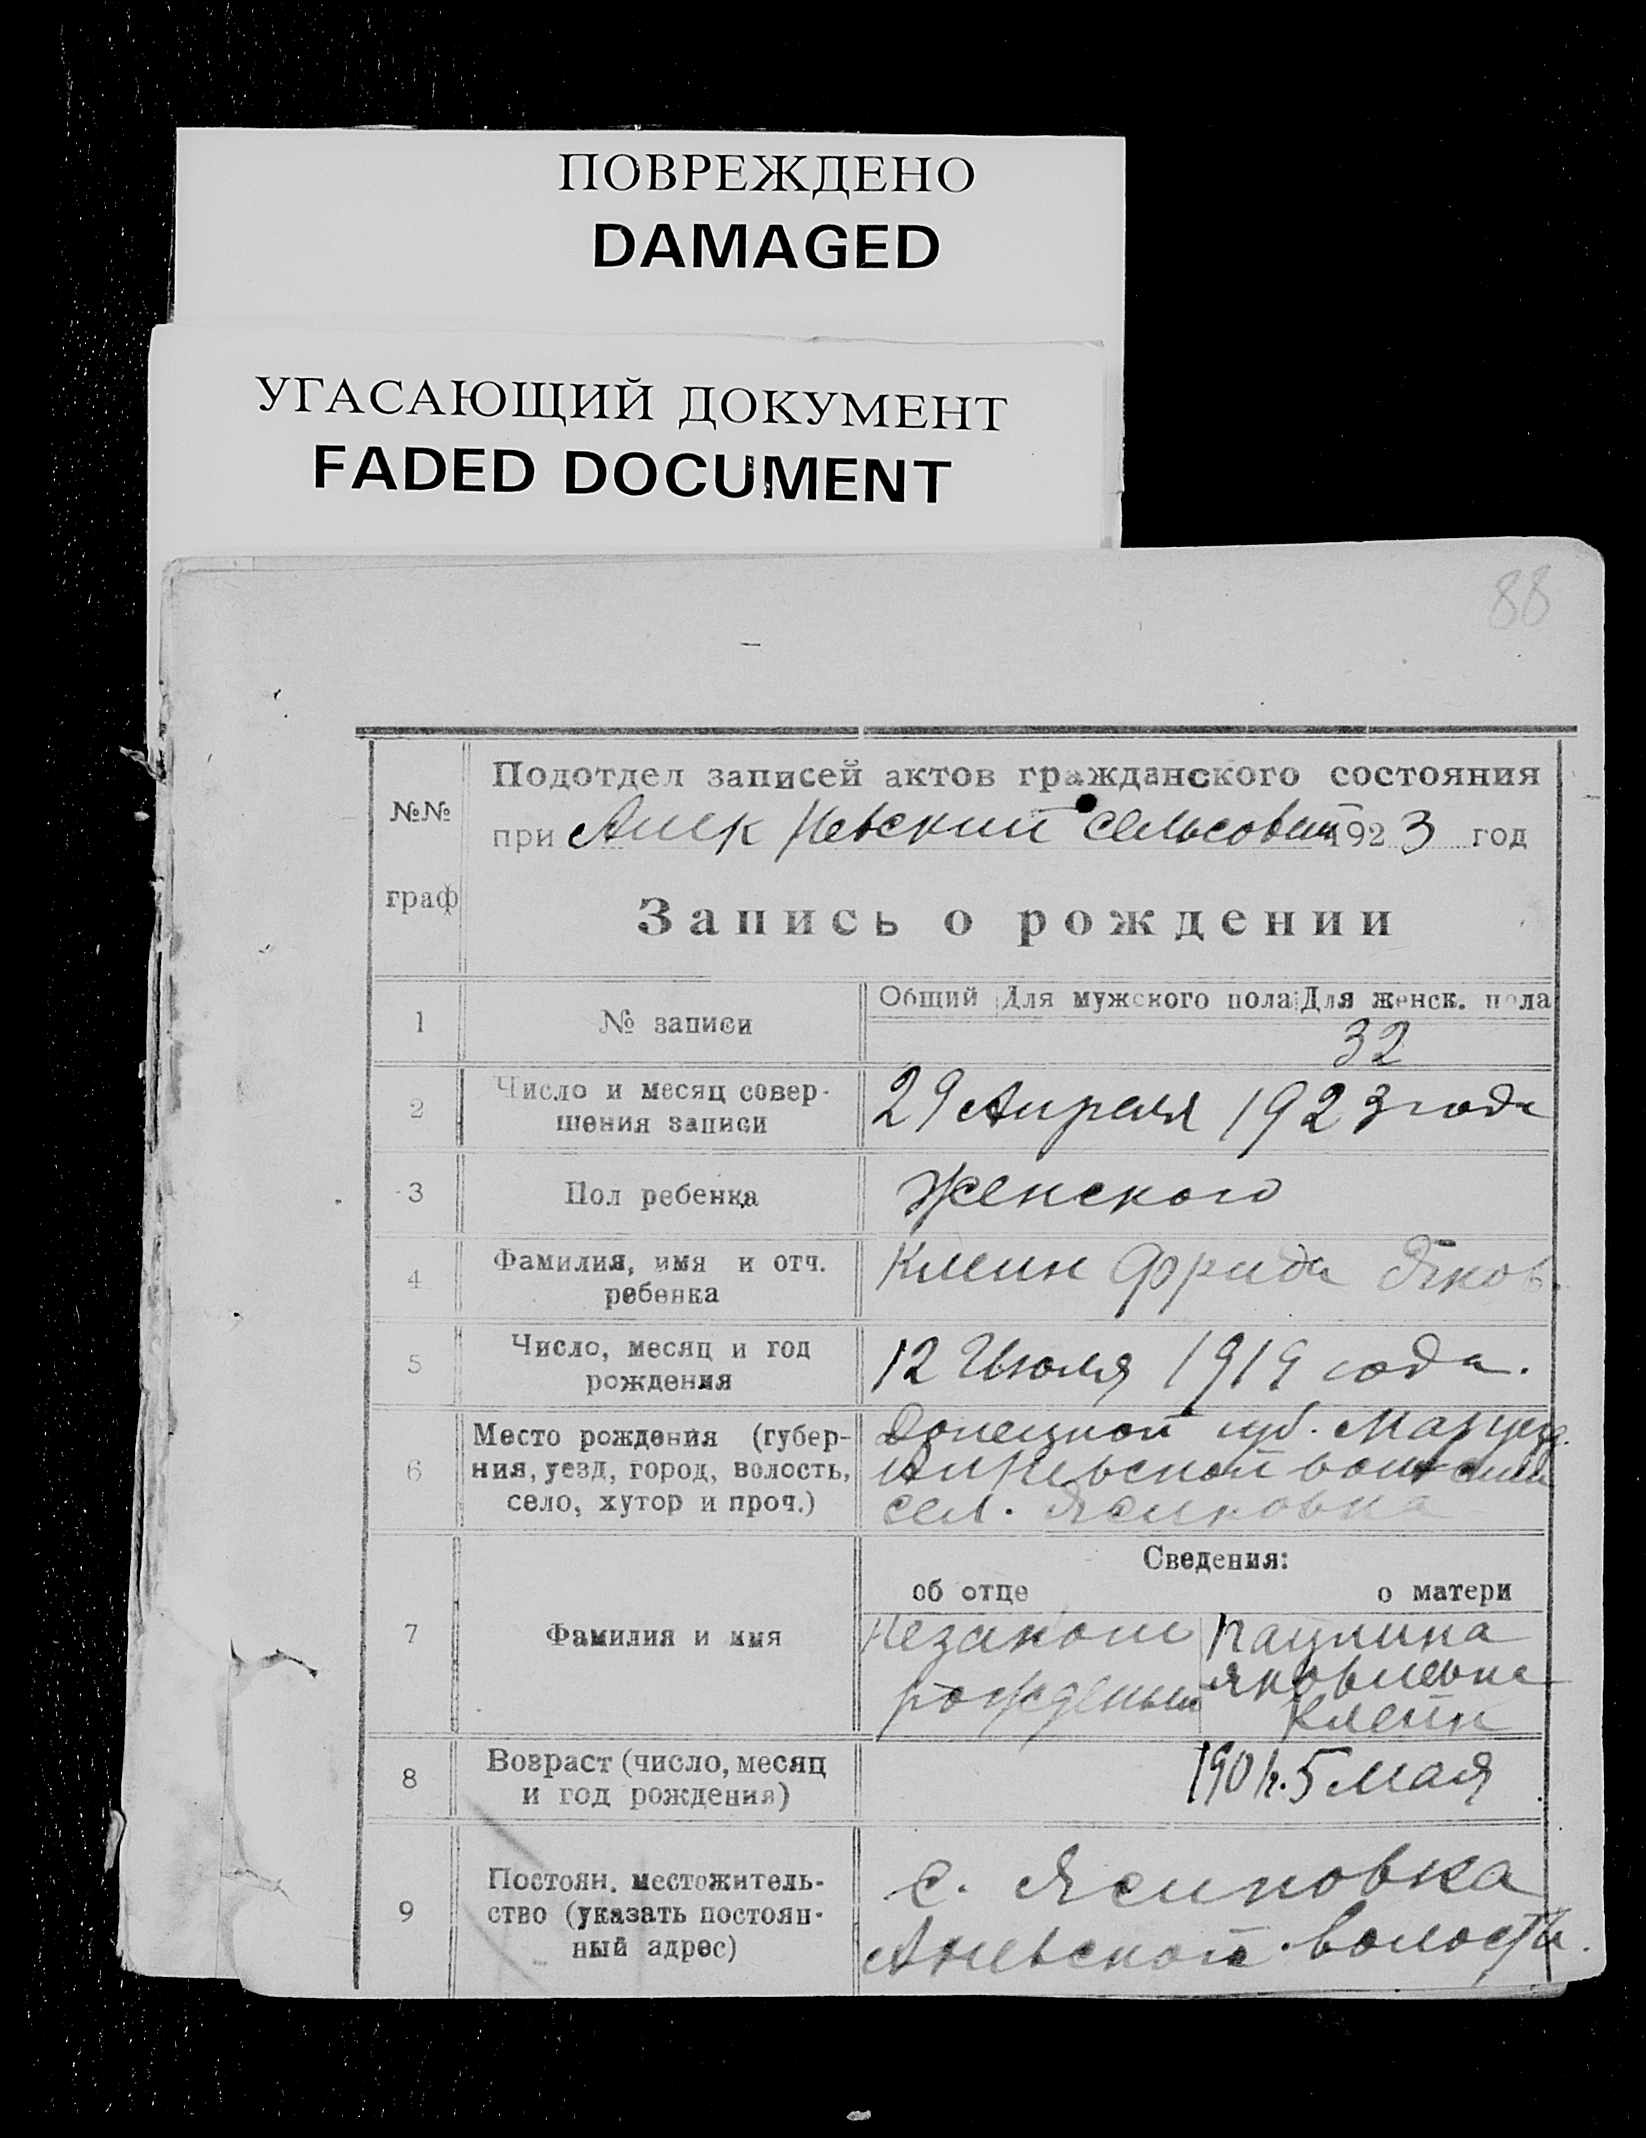 ПОВРЕЖДЕНО
DAMAGED
УГАСАЮЩИЙ ДОКУМЕНТ
FADED DOCUMENT
88
№№ граф
Подотдел записей актов гражданского состояния
при Алек Невский сельсовет 1923 год
Запись о рождении
Общий Для мужского пола Для женск. пола
1 № записи 32
2 Число и месяц совер-
шения записи
29 Апреля 1923 года
3 Пол ребенка Женского
4 Фамилия, имя и отч.
ребенка
Клеин Фрида Яков.
5 Число, месяц и год
рождения
12 Июля 1919 года.
6 Место рождения (губер-
ния, уезд, город, волость,
село, хутор и проч.)
Донецкой губ. Мар уезд.
сел. Ясиновка
Сведения:
об отце о матери
7 Фамилия и имя
Незакон
рожденый
Паулина
Яковлевна
Клейн
8 Возраст (число, месяц
и год рождения)
1901г. 5 мая
9 Постоян. местожитель-
ство (указать постоян-
ный адрес)
с. Ясиновка
Аневской волости.